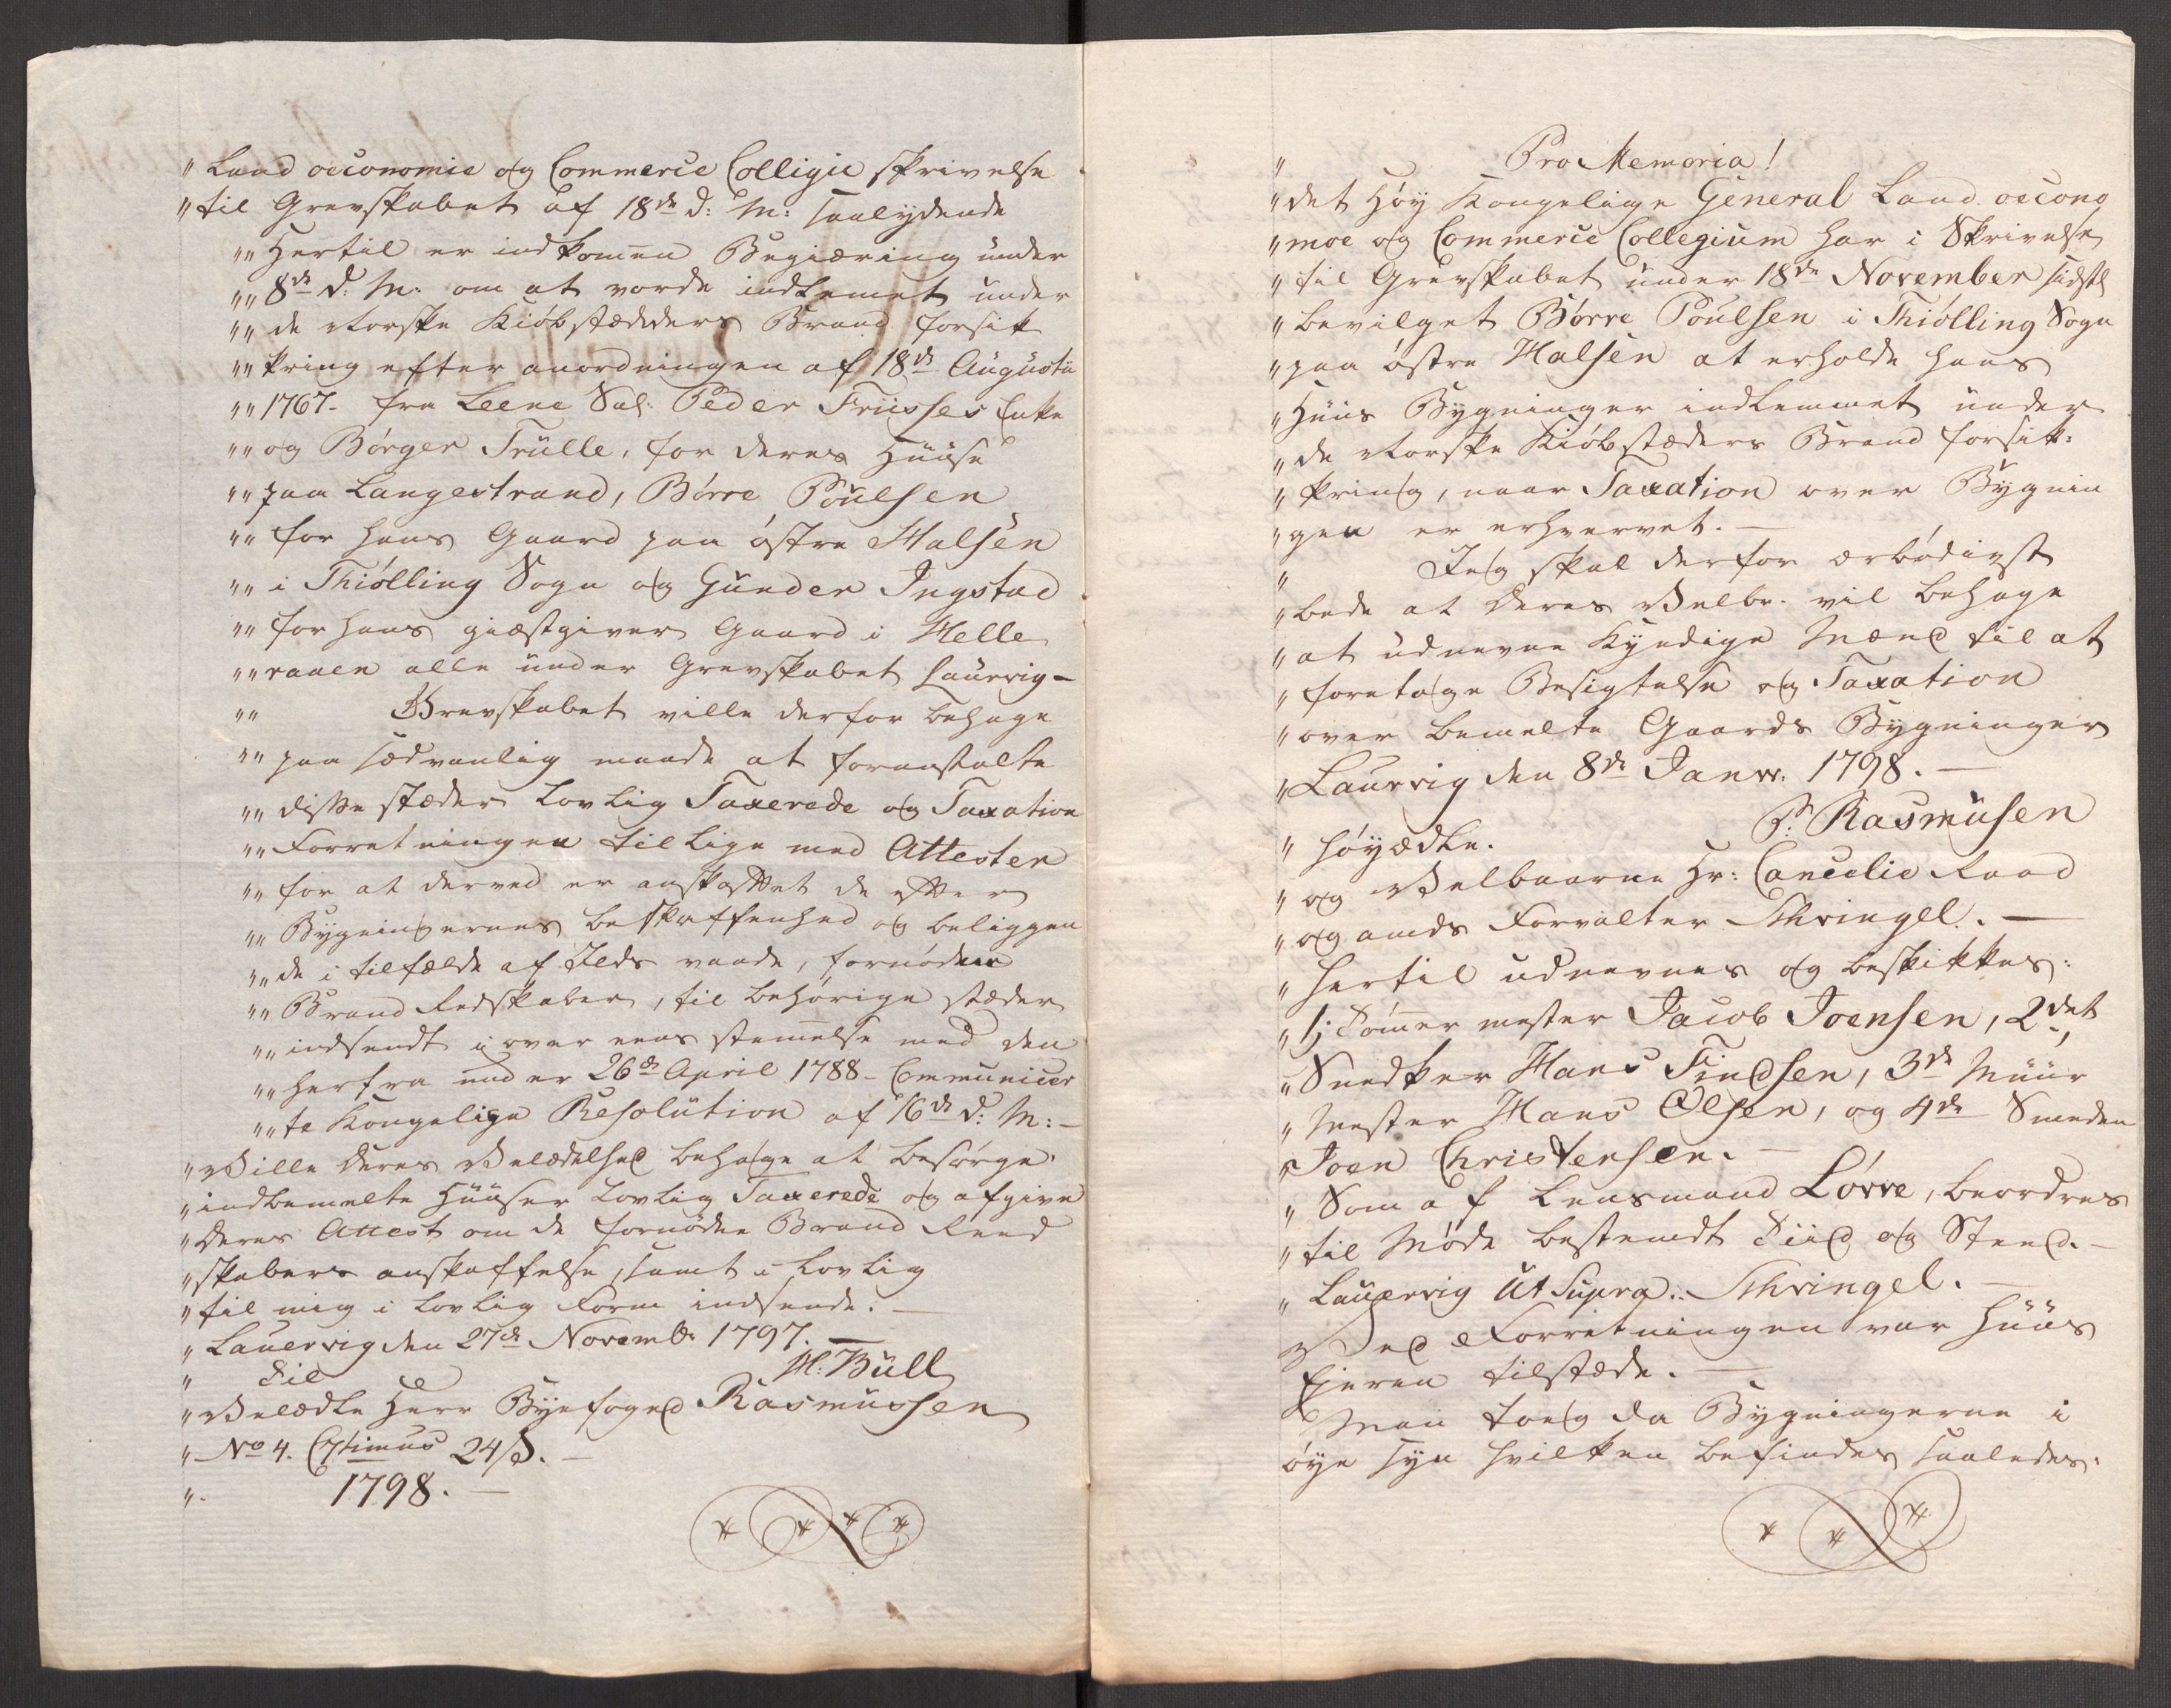 " Land oeconomie og Commerce Colligie skrivelse
" til Grevskabet af 18de d: M: saalydende
"" Hertil er indkomen Begiæring under
"" 8de d: M: om at vorde indlemet under
"" de Norske Kiöbstædders Brand forsik
"" kring efter anordningen af 18de Augustii
"" 1767. fra Leene Sal: Peder Friises Enke
"" og Börger Trulle, for deres Huuse
"" paa Langestrand, Börre Poulsen
"" for hans Gaard paa östre Halsen
"" i Thiölling Sogn og Gunder Ingstad
"" for hans giæstgiver Gaard i Helle
"" raaen alle under Grevskabet Laurvig –
"" Grevskabet ville derfor behage
"" paa sædvanlig maade at foranstalte
"" disse stæder lovlig Taxerede og Taxation
"" Forretningen tillige med Attester
"" for at derved er anskaffet de efter
"" Bygningernes beskaffenhed og beliggen
"" de i tilfælde af Ilds vaade, fornöden
"" Brand Redskaber, til behörige stæder
"" indsendt i over eens stemelse med den
"" herfra under 26de April 1788 – Communicer
"" te Kongelige Resolution af 16de d: M: –
" Ville Deres Velædelhed behage at besörge
" indbemelte Huuser lovlig Taxerede og afgive
" Deres Attest om de fornödne Brand Reed
" skabers anskaffelse, samt i lovlig
" til mig i lovlig Form indsende. –
" Lauervig den 27de Novembr 1797. –
" Til M: Bull
" Velædle Herr Byefoged Rasmussen
" No 4. 24 ß. –
" 1798. –
" Pro Memoria!
" det Höy Kongelige General Land oecono
" moe og Commerce Collegium har i Skrivelse
" til Grevskabet under 18de November sidstl
" bevilget Börre Poulsen i Thiölling Sogn
" paa östre Halsen at erholde hans
" Huus Bygninger indlemmet under
" de Norske Kiöbstæders Brand forsik:
" kring, naar Taxation over Bygnin
" gen er erhvervet. –
" Jeg skal derfor ærbödigst
" bede at Deres Velbr. vil behage
" at udnevne Kyndige Mænd til at
" foretage Besigtelse og Taxation
" over bemelte Gaards Bygninger
" Laurvig den 8de Janvr. 1798. –
P: Rasmusen
" höyædle.
" og Velbaarne Hr: Cancelie Raad
" og amds Forvalter Schvingel. –
" Hertil udnevnes og beskikkes:
" 1; Tömer mester Jacob Joensen, 2det
" Snedker Hans Findsen, 3de Muur
" Mester Hans Olsen, og 4de Smeden
" Joen Christensen. –
" Som af Lensmand Lörve, beordres
" til Möde bestemdt Tiid og Steed. –
" Lauervig Ut Supra. Schvingel. –
Ved Forretningen var Huus
Ejeren tilstæde. –
Man toeg da Bygningerne i
öye syn hvilken befindes saaledes.